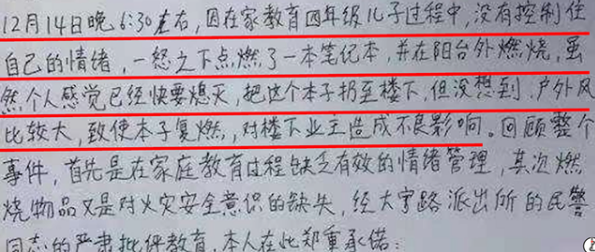 12月14日晚6:30左右,因在家教育四年级儿子过程中,没有控制住
自己的情绪,一怒之下点燃了一本笔记本,并在阳台外燃烧,虽
然个人感觉已经快要熄灭,把这个本子扔至楼下,但没想到,户外风
比较大,致使本子复燃,对楼下业主造成不良影响。回顾整个
事件,首先是在家庭教育过程缺乏有效的情绪管理,其次燃
烧物品又是对火灾安全意识的缺失,经大亨路派出所的民警
同志的严肃批评教育,本人在此郑重承诺: